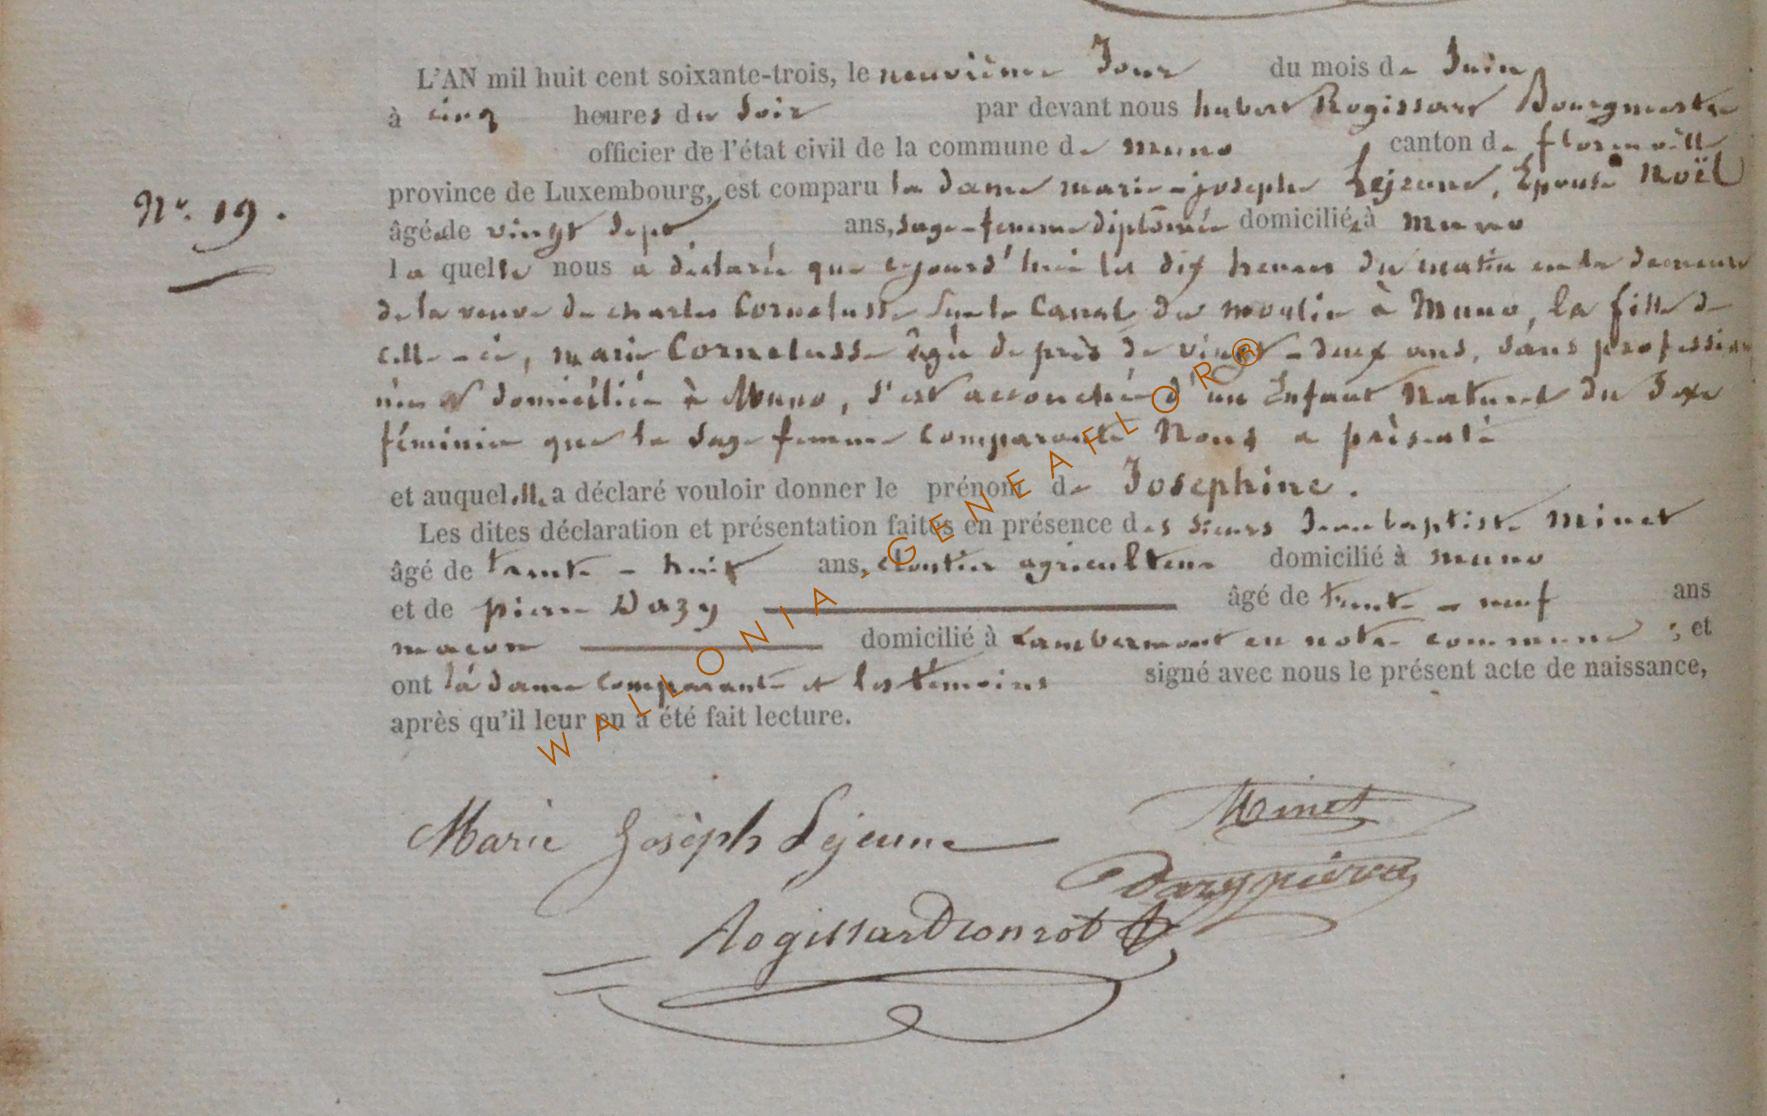 L'AN mil huit cent soixante-trois, le neuvième Jour du mois de Juin
à cinq heures du soir par devant nous hubert Rogissart Bourgmestre
officier de l'état civil de la commune de Muno canton de florenville
province de Luxembourg, est comparu la dame marie-josephe Lejeune, Epouse Noël
Nr. 19.
âgée de vingt sept ans, sage-femme diplômée domiciliée à Muno
laquelle nous a déclaré que cejourd'hui les dix heures du matin en la demeure
de la veuve de charles Cornelusse sur le Canal du moulin à Muno, la fille de
celle-ci, marie Cornelusse âgée de près de vingt-deux ans, sans profession
née et domiciliée à Muno, s'est accouchée d'un Enfant Naturel du Sexe
féminin que la sage femme comparante Nous a présenté
et auquel elle a déclaré vouloir donner le prénom de Josephine.
Les dites déclaration et présentation faites en présence des sieurs Jean baptiste Minet
âgé de trente-huit ans, cloutier agriculteur domicilié à Muno
et de pierre Dazy âgé de trente-neuf ans
maçon domicilié à Lambermont en notre commune ; et
ont la dame comparante et les témoins signé avec nous le présent acte de naissance,
après qu'il leur en a été fait lecture.
Marie Josèph Lejeune
Minet
Dazy pierre
Rogissart
WALLONIA-GENEAFLOR®